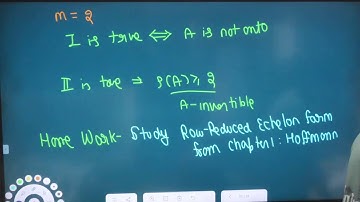 m = 2
I is true ⇔ A is not onto
II is true ⇒ ρ(A) ≥ 2
A-invertible
Home Work- Study Row-Reduced Echelon form
from chapter 1: Hoffmann